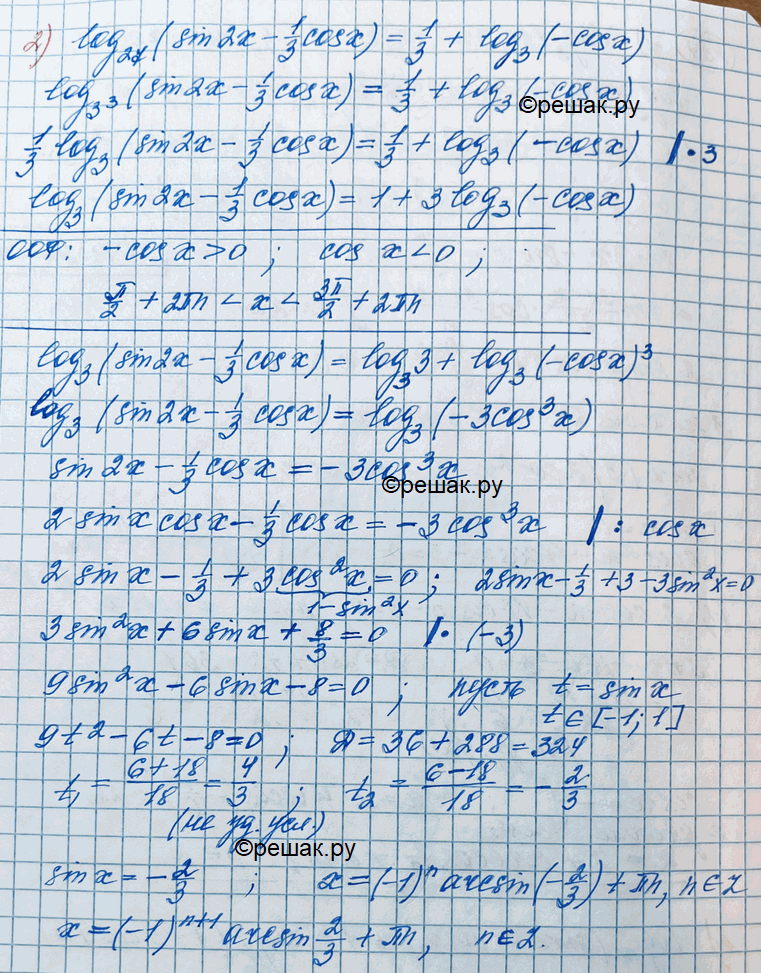 2) log₂₇(sin2x - 1/3 cosx) = 1/3 + log₃(-cosx)
log₃³(sin2x - 1/3 cosx) = 1/3 + log₃(-cosx)
©решак.ру
1/3 log₃(sin2x - 1/3 cosx) = 1/3 + log₃(-cosx) |·3
log₃(sin2x - 1/3 cosx) = 1 + 3log₃(-cosx)
ООФ: -cosx > 0 ; cos x < 0 ;
π/2 + 2πn < x < 3π/2 + 2πn
log₃(sin2x - 1/3 cosx) = log₃3 + log₃(-cosx)³
log₃(sin2x - 1/3 cosx) = log₃(-3cos³x)
sin2x - 1/3 cosx = -3cos³x
©решак.ру
2 sinx cosx - 1/3 cosx = -3cos³x |: cosx
2 sinx - 1/3 + 3cos²x = 0 ; 2sinx - 1/3 + 3 - 3sin²x = 0
1-sin²x
3sin²x + 6sinx + 8/3 = 0 |·(-3)
9sin²x - 6sinx - 8 = 0 ; пусть t = sinx
t ∈ [-1; 1]
9t² - 6t - 8 = 0 ; D = 36 + 288 = 324
t₁ = (6+18)/18 = 4/3 ; t₂ = (6-18)/18 = -2/3
(не уд. усл.)
©решак.ру
sinx = -2/3 ; x = (-1)ⁿ arcsin(-2/3) + πn, n∈Z
x = (-1)ⁿ⁺¹ arcsin 2/3 + πn, n∈Z.